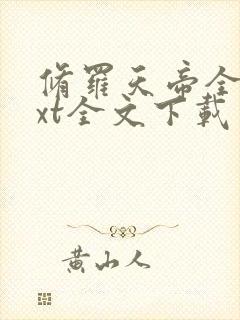 脩羅天帝全
xt全文下載
黄山人